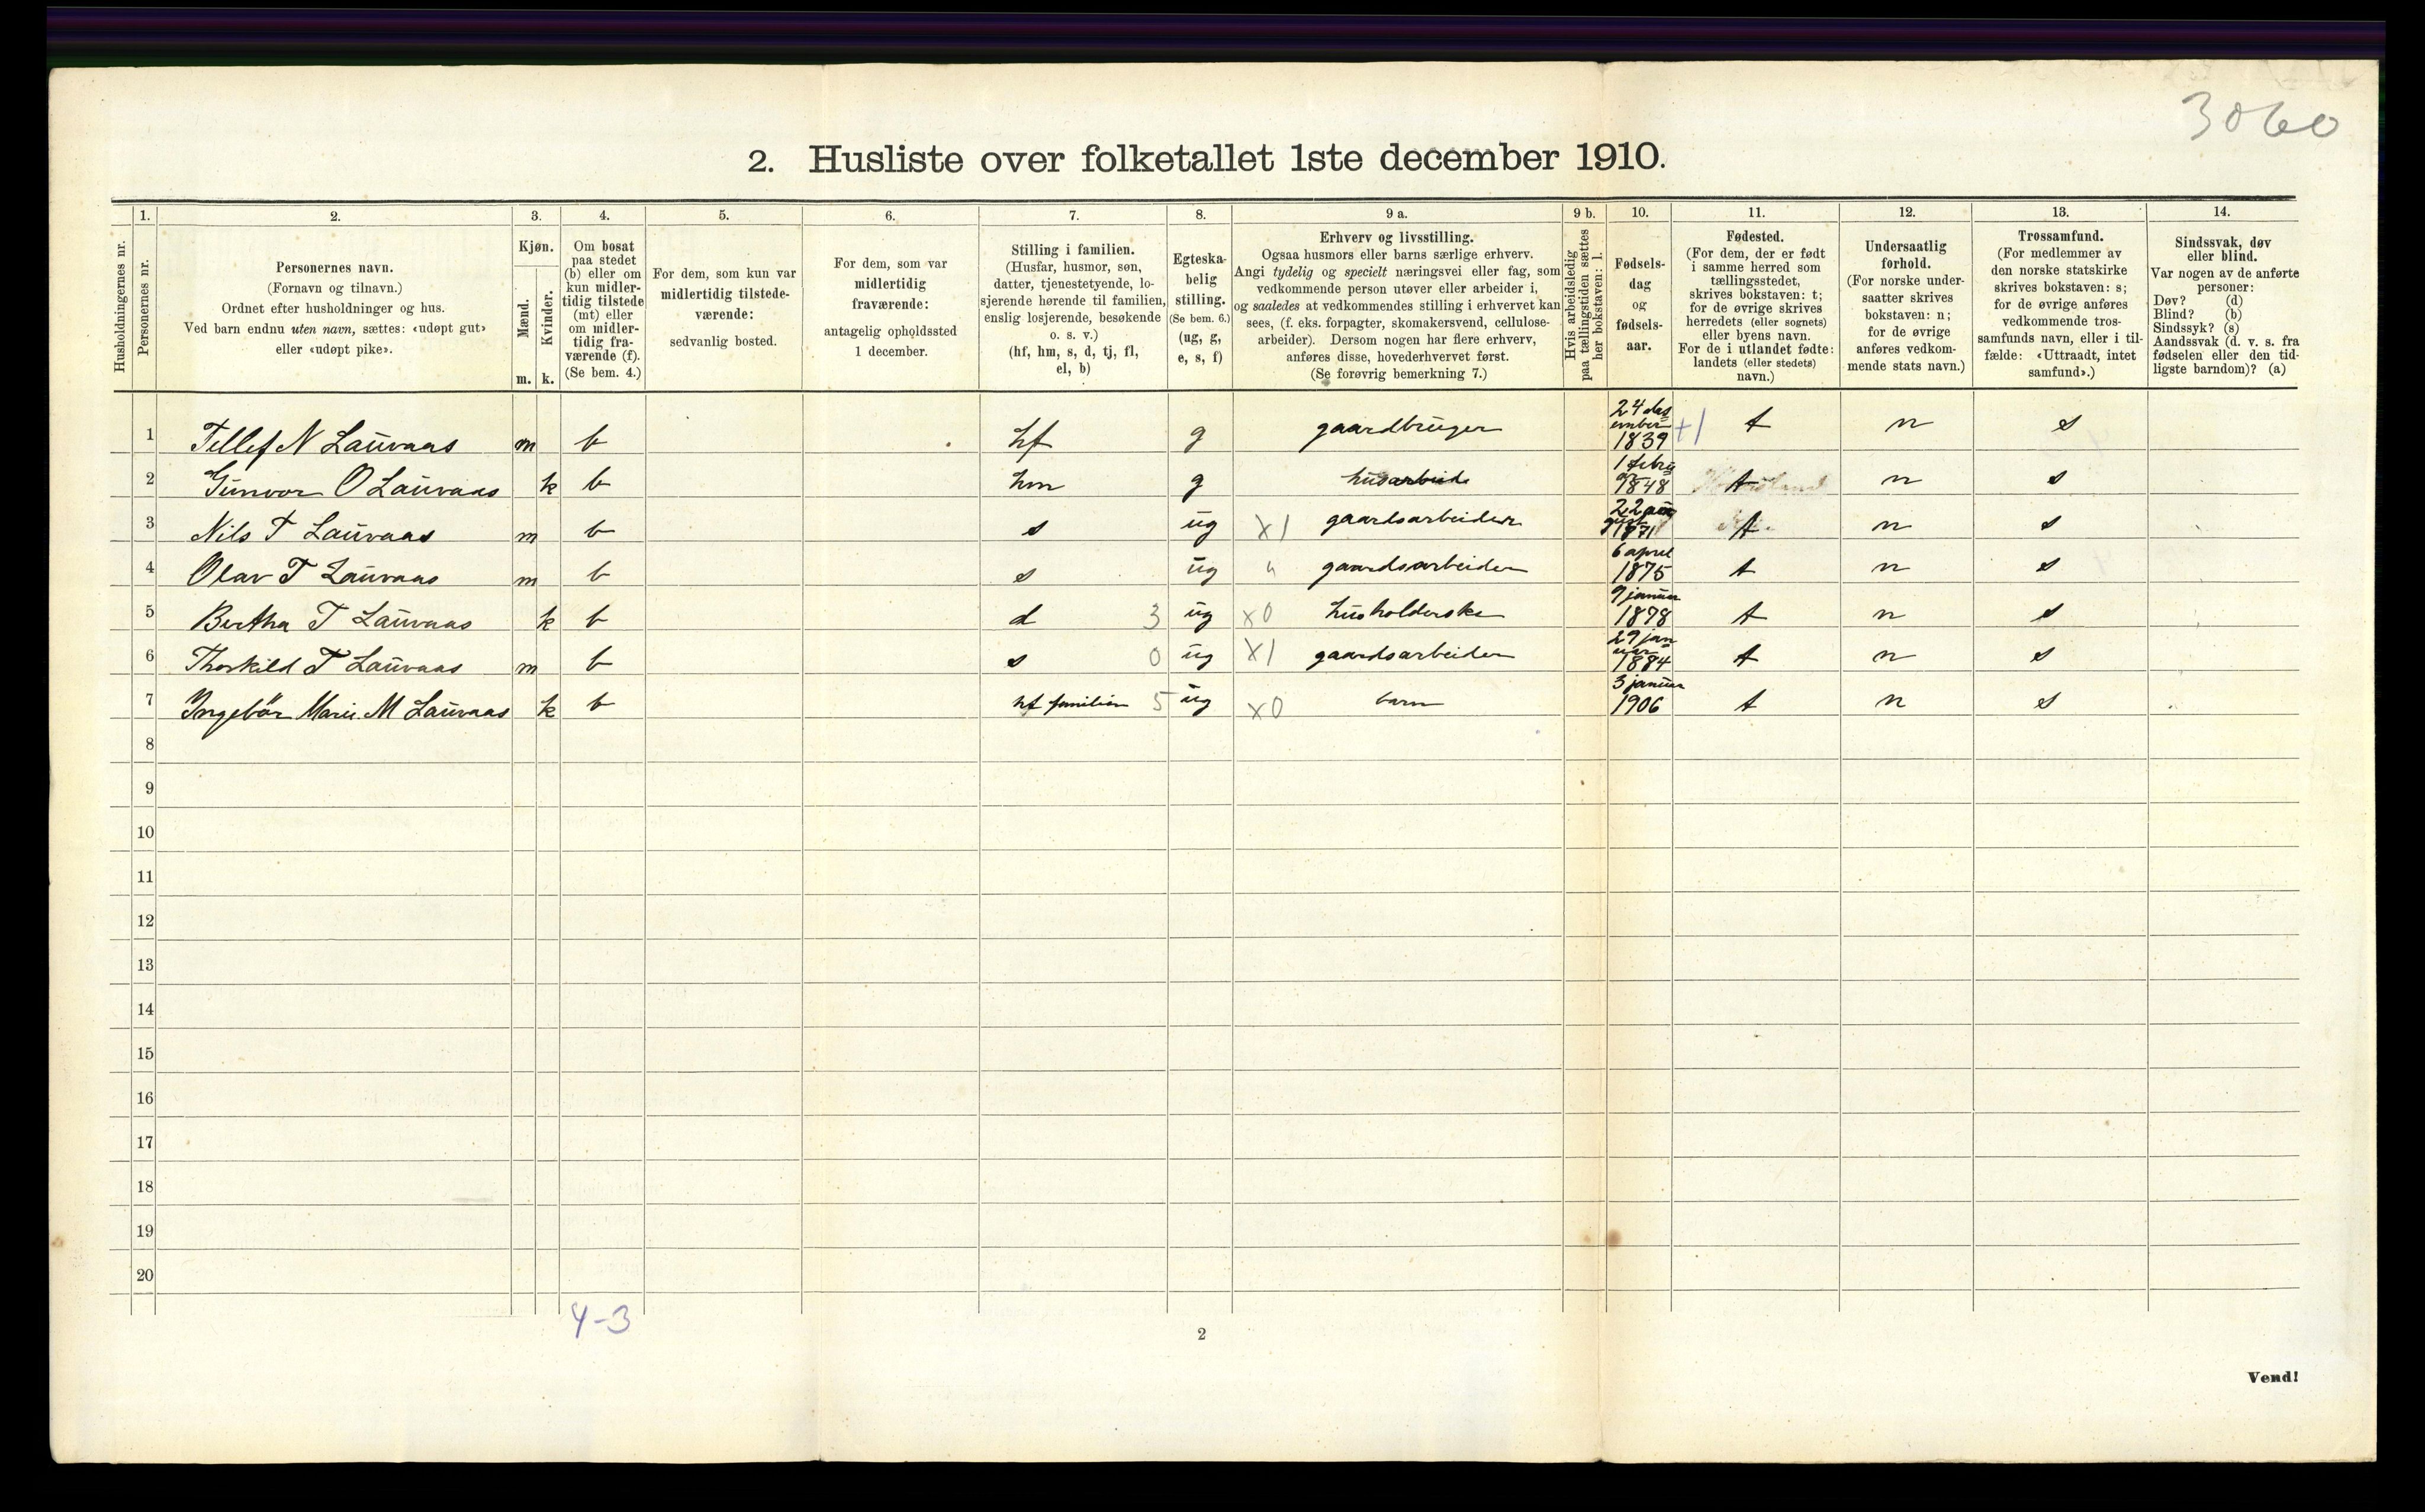 3060
2. Husliste over folketallet 1ste december 1910.
1. 2. 3. 4. 5. 6. 7. 8. 9 a. 9 b. 10. 11. 12. 13. 14.
Husholdningernes nr.
Personernes nr.
Personernes navn.
(Fornavn og tilnavn.)
Ordnet efter husholdninger og hus.
Ved barn endnu uten navn, sættes: «udøpt gut»
eller «udøpt pike».
Kjøn.
Mænd.
Kvinder.
m. k.
Om bosat
paa stedet
(b) eller om
kun midler-
tidig tilstede
(mt) eller
om midler-
tidig fra-
værende (f).
(Se bem. 4.)
For dem, som kun var
midlertidig tilstede-
værende:
sedvanlig bosted.
For dem, som var
midlertidig
fraværende:
antagelig opholdssted
1 december.
Stilling i familien.
(Husfar, husmor, søn,
datter, tjenestetyende, lo-
sjerende hørende til familien,
enslig losjerende, besøkende
o. s. v.)
(hf, hm, s, d, tj, fl,
el, b)
Egteska-
belig
stilling.
(Se bem. 6.)
(ug, g,
e, s, f)
Erhverv og livsstilling.
Ogsaa husmors eller barns særlige erhverv.
Angi tydelig og specielt næringsvei eller fag, som
vedkommende person utøver eller arbeider i,
og saaledes at vedkommendes stilling i erhvervet kan
sees, (f. eks. forpagter, skomakersvend, cellulose-
arbeider). Dersom nogen har flere erhverv,
anføres disse, hovederhvervet først.
(Se forøvrig bemerkning 7.)
Hvis arbeidsledig
paa tællingstiden sættes
her bokstaven: l.
Fødsels-
dag
og
fødsels-
aar.
Fødested.
(For dem, der er født
i samme herred som
tællingsstedet,
skrives bokstaven: t;
for de øvrige skrives
herredets (eller sognets)
eller byens navn.
For de i utlandet fødte:
landets (eller stedets)
navn.)
Undersaatlig
forhold.
(For norske under-
saatter skrives
bokstaven: n;
for de øvrige
anføres vedkom-
mende stats navn.)
Trossamfund.
(For medlemmer av
den norske statskirke
skrives bokstaven: s;
for de øvrige anføres
vedkommende tros-
samfunds navn, eller i til-
fælde: «Uttraadt, intet
samfund».)
Sindssvak, døv
eller blind.
Var nogen av de anførte
personer:
Døv? (d)
Blind? (b)
Sindssyk? (s)
Aandssvak (d. v. s. fra
fødselen eller den tid-
ligste barndom)? (a)
1 Tellef N Lauvaas m b hf g gaardbruger 24 des ember 1839 +1 t n s
2 Gunvor O Lauvaas k b hm g husarbeide 1 febru ar 1848 t n s
3 Nils T Lauvaas m b s ug X1 gaardsarbeider 22 aug ust 1871 t n s
4 Olav T Lauvaas m b s ug " gaardsarbeider 6 april 1875 t n s
5 Bertha T Lauvaas k b d 3 ug X0 husholderske 9 januar 1878 t n s
6 Thorkild T Lauvaas m b s 0 ug X1 gaardsarbeider 29 jan uar 1884 t n s
7 Ingebør Marie M Lauvaas k b hf familien 5 ug X0 barn 3 januar 1906 t n s
8
9
10
11
12
13
14
15
16
17
18
19
20
4-3
2
Vend!